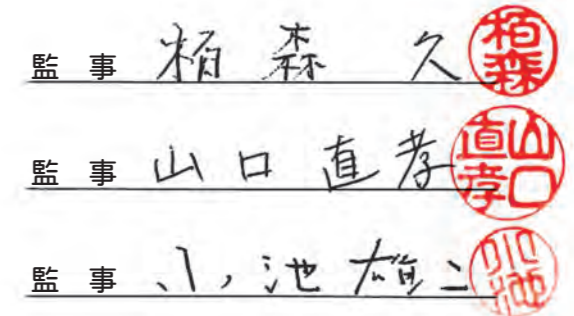 監事 栢森 久 栢森
監事 山口 直孝 山口直孝
監事 小池 雄二 小池